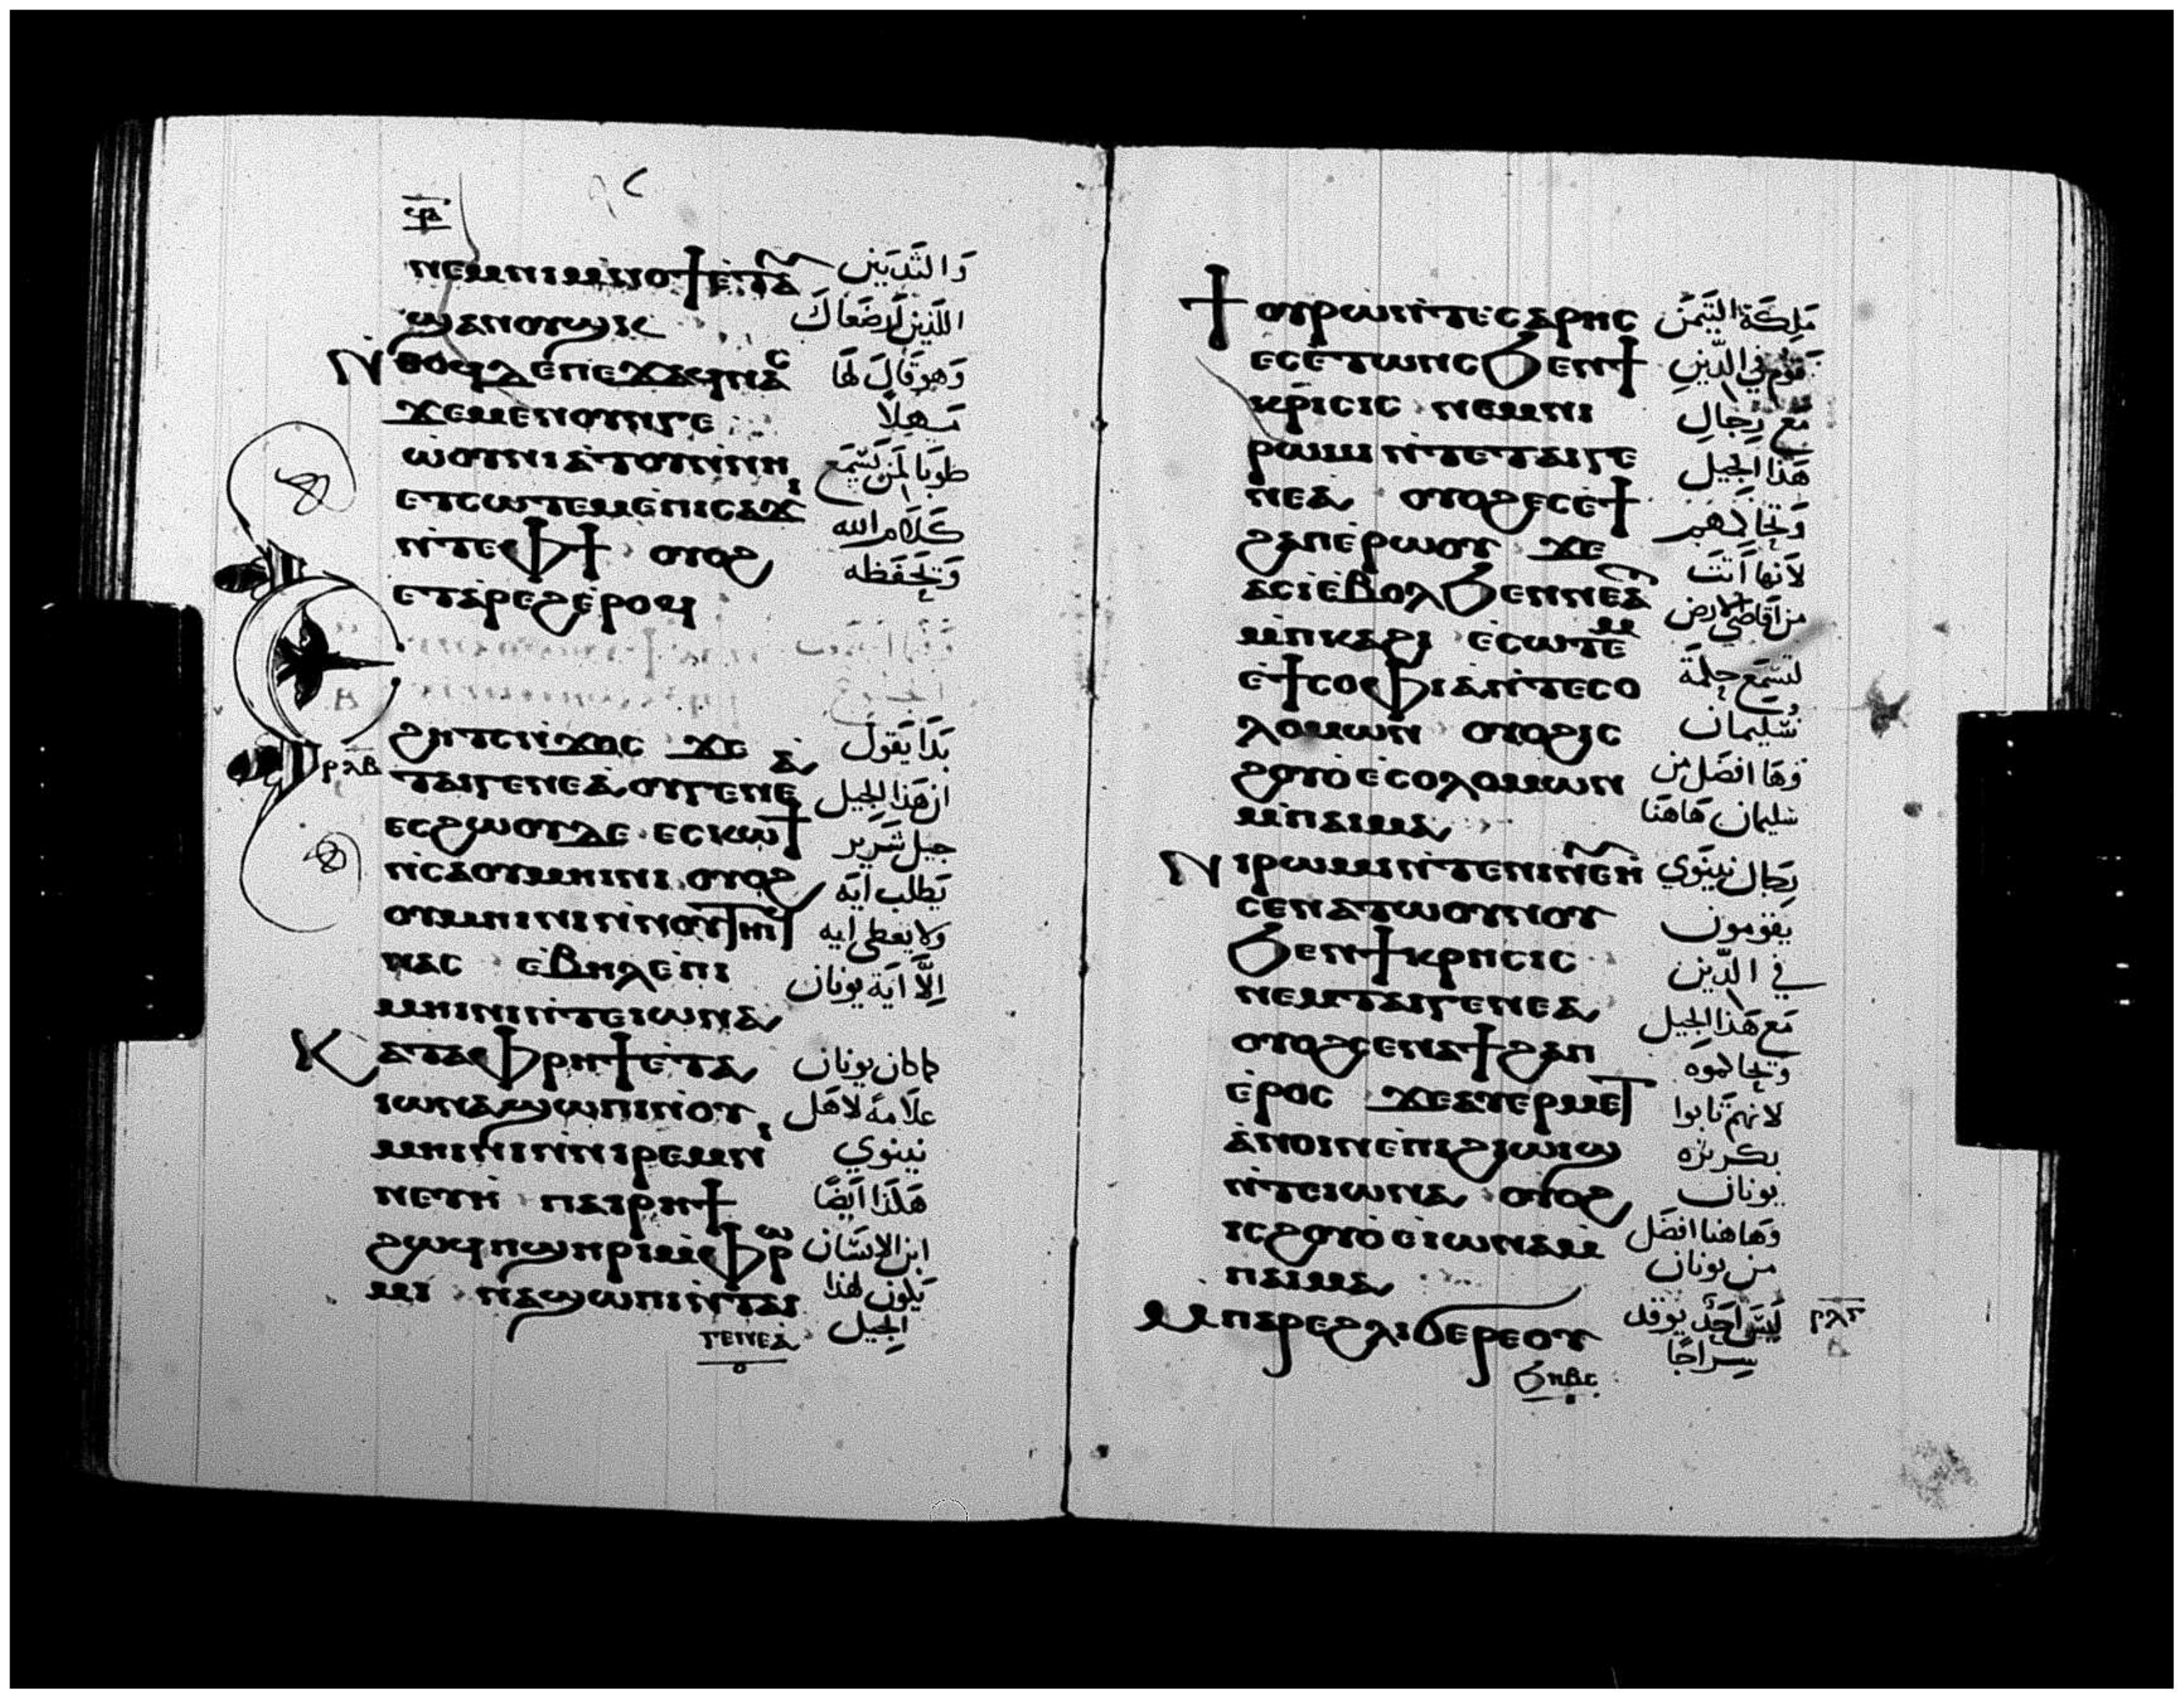 ϥⲃ
ⲛⲉⲙⲛⲓⲙⲛⲟϯⲉⲧⲁ وَالثَّدْيَيْن
ϣⲁⲛⲟⲩϣⲓⲥ اللذين ارضعاك
Ⲛⲑⲟϥⲇⲉⲡⲉϫⲁϥⲛⲁⲥ وَهو قَالَ لَهَا
ϫⲉⲙⲉⲛⲟⲩⲛⲅⲉ مَهلًا
ⲱⲟⲩⲛⲓⲁⲧⲟⲩⲛⲛⲏ طوبَا لمَن يَسْمَع
ⲉⲧⲥⲱⲧⲉⲙⲉⲡⲓⲥⲁϫⲓ كَلَام الله
ⲛⲧⲉⲫϯ ⲟⲩⲟϩ وَيَحفَظه
ⲉⲧⲁⲣⲉϩⲉⲣⲟϥ
ϩⲏⲧⲥⲛϫⲟⲥ ϫⲉ بَدَا يَقولُ
ⲣⲗⲃ ⲧⲁⲓⲅⲉⲛⲉⲁⲟⲩⲅⲉⲛⲉⲁ ان هَذا الجِيل
ⲉⲥϩⲱⲟⲩⲇⲉ ⲉⲥⲕⲱϯ جيل شرير
ⲛⲥⲁⲟⲩⲙⲏⲓⲛⲓ ⲟⲩⲟϩ يَطلب ايَه
ⲟⲩⲙⲏⲓⲛⲓⲛⲛⲟⲩⲧⲏⲓϥ ولا يعطى ايه
ⲛⲁⲥ ⲉⲃⲏⲗⲉⲡⲓ اِلَّا ايَة يونان
ⲙⲏⲓⲛⲓⲛⲧⲉⲓⲱⲛⲁ
Ⲕⲁⲧⲁⲫⲣⲏϯⲉⲧⲁ كما كان يونان
ⲓⲱⲛⲁϣⲱⲡⲓⲛⲟⲩ علَامة لاهَل
ⲙⲏⲓⲛⲓⲛⲛⲓⲣⲉⲙⲛ نينوي
ⲛⲉⲩⲏ ⲡⲁⲓⲣⲏϯ هَكذا ايَضًا
ϩⲱϥⲡϣⲏⲣⲓⲙⲫⲣⲱ ابن الاِنسَان
ⲙⲓ ⲛⲁϣⲱⲡⲓⲛⲧⲁⲓ يَكون لهذا
ⲅⲉⲛⲉⲁ الجِيل
Ϯⲟⲩⲣⲱⲛⲧⲉⲥⲁⲣⲏⲥ مَلِكَة التَيمَن
ⲉⲥⲉⲧⲱⲛⲥϧⲉⲛϯ تقوم في الدّينِ
ⲕⲣⲓⲥⲓⲥ ⲛⲉⲙⲛⲓ مَع رِجَالِ
ⲣⲱⲙⲓ ⲛⲧⲉⲧⲁⲓⲅⲉ هَذا الجِيل
ⲛⲉⲁ ⲟⲩⲟϩⲉⲥⲉϯ وَتحَاكمهم
ϩⲁⲡⲉⲣⲱⲟⲩ ϫⲉ لاَنها اَتَت
ⲁⲥⲓⲉⲃⲟⲗϧⲉⲛⲛⲉⲁ من اقَاصي الارض
ⲙⲡⲕⲁϩⲓ ⲉⲥⲱⲧⲉⲙ لتسَمَع حِكمَة
ⲉϯⲥⲟⲫⲓⲁⲛⲧⲉⲥⲟ سُليمان
ⲗⲟⲙⲱⲛ ⲟⲩⲟϩⲓⲥ وَهَا افضَل من
ϩⲟⲩⲟⲉⲥⲟⲗⲟⲙⲱⲛ سليمان هَاهنَا
ⲙⲡⲁⲓⲙⲁ
Ⲛⲓⲣⲱⲙⲓⲛⲧⲉⲛⲓⲛⲉⲩⲏ رِجَال نينَوَي
ⲥⲉⲛⲁⲧⲱⲟⲩⲛⲟⲩ يقومون
ϧⲉⲛϯⲕⲣⲏⲥⲓⲥ في الدّين
ⲛⲉⲙⲧⲁⲓⲅⲉⲛⲉⲁ مَع هَذا الجِيل
ⲟⲩⲟϩⲥⲉⲛⲁϯϩⲁⲡ وتحاكموه
ⲉⲣⲟⲥ ϫⲉⲁⲩⲉⲣⲙⲉⲧ لانهم تَابوا
ⲁⲛⲟⲓⲛⲉⲡⲓϩⲓⲱⲓϣ بكرِزه
ⲛⲧⲉⲓⲱⲛⲁ ⲟⲩⲟϩ يونان
ⲓⲥϩⲟⲩⲟⲉⲓⲱⲛⲁⲙ وَهَاهنا افضَل
ⲡⲁⲓⲙⲁ من يونان
Ⲙⲡⲁⲣⲉϩⲗⲓϭⲉⲣⲉⲟⲩ لَيسَ احَد يوقد ⲣⲗⲅ
ϧⲏⲃⲥ سِراجًا